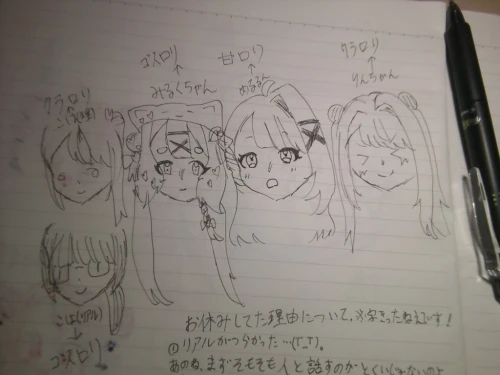 ゴスロリ
↑
みるくちゃん
甘ロリ
↑
めるる
クラロリ
↑
りんちゃん
クラロリ
(リアル)
↓
ゴスロリ
お休みしてた理由について、
です!
①リアルがつらかった…(T_T)。
あのね、まずそもそも人と話すのがとくいじゃないのよ